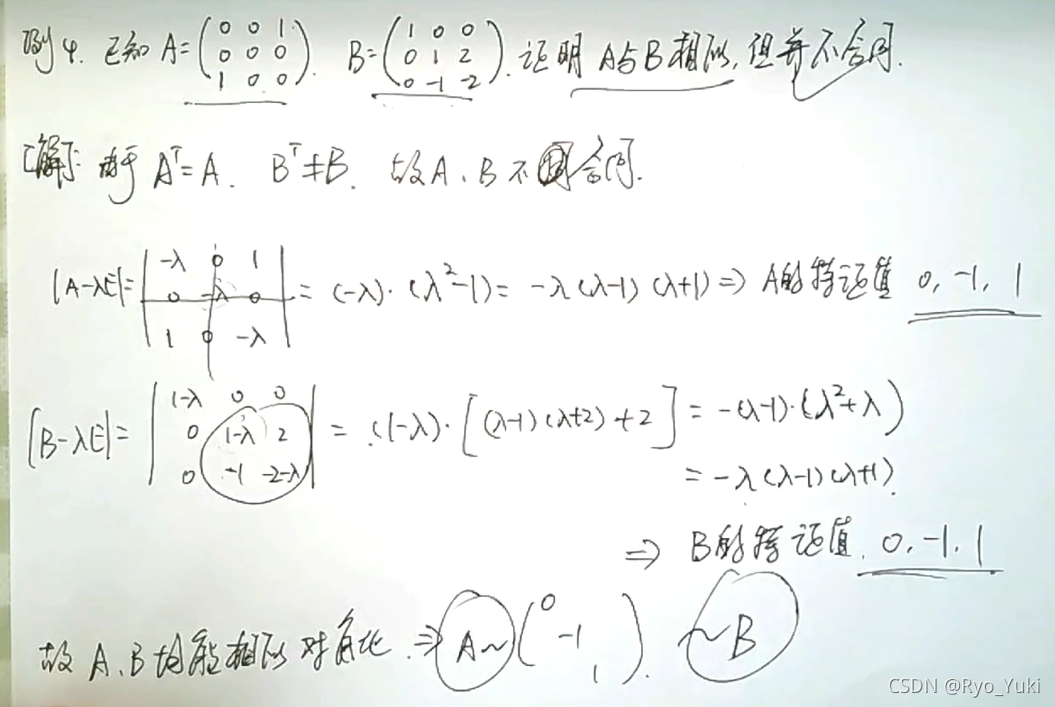 例4. 已知 A=(0 0 1 0 0 0 1 0 0). B=(1 0 0 0 1 2 0 -1 -2). 证明 A与B相似,但并不合同.
[解]: 由于 Aᵀ=A. Bᵀ≠B. 故A、B不合同.
|A-λE|=|-λ 0 1 0 -λ 0 1 0 -λ|=(-λ)·(λ²-1)=-λ(λ-1)(λ+1)⇒A的特征值 0,-1,1
|B-λE|=|1-λ 0 0 0 1-λ 2 0 -1 -2-λ|=(1-λ)·[(λ-1)(λ+2)+2]=-(λ-1)·(λ²+λ)
=-λ(λ-1)(λ+1).
⇒ B的特征值. 0,-1,1
故A、B均能相似对角化.⇒A~(0 -1 1). ~B
CSDN @Ryo_Yuki